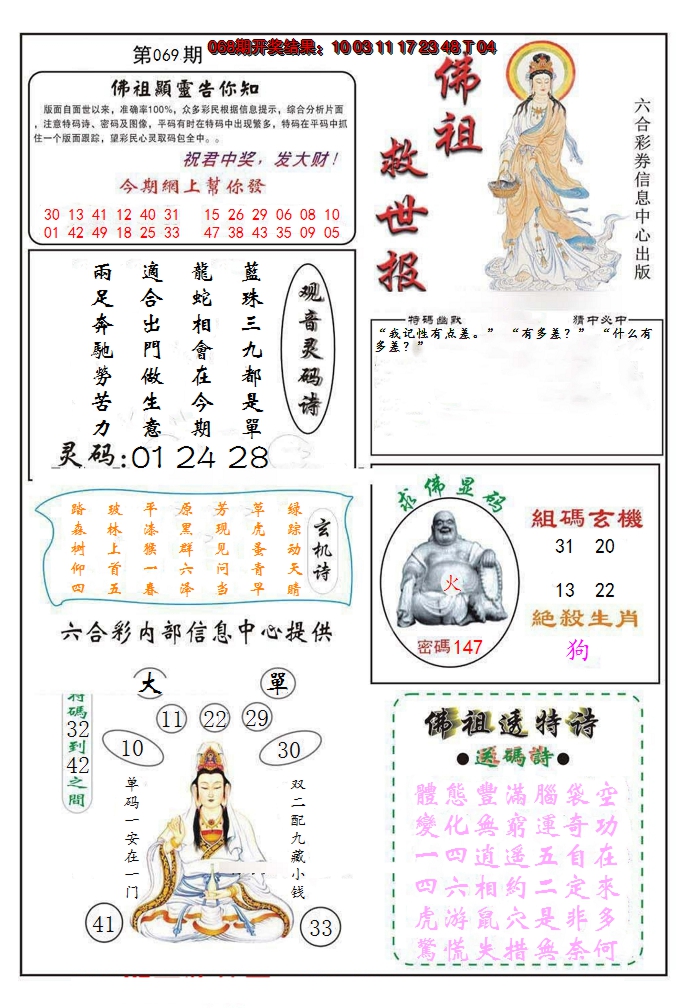 第069期
068期开奖结果：10 03 11 17 23 48 T 04
佛祖顯靈告你知
版面自面世以来，准确率100%，众多彩民根据信息提示，综合分析片面
，注意特码诗、密码及图像，平码有时在特码中出现繁多，特码在平码中抓
住一个版面跟踪，望彩民心灵取码包全中。。
祝君中奖，发大财！
今期網上幫你發
30 13 41 12 40 31 15 26 29 06 08 10
01 42 49 18 25 33 47 38 43 35 09 05
佛祖救世报
六合彩券信息中心出版
观音灵码诗
藍珠三九都是單
龍蛇相會在今期
適合出門做生意
兩足奔馳勞苦力
灵码:01 24 28
特碼幽默
猜中必中
“我记性有点差。” “有多差？” “什么有
多差？”
玄机诗
绿踪动天晴
草虎蚤青旱
芳现见问当
原黑群六泽
平漆猴一春
玻林上首五
踏森树仰四
六合彩内部信息中心提供
求佛显码
火
密碼147
組碼玄機
31 20
13 22
絶殺生肖
狗
大
單
特碼32到42之間
11 22 29
10
30
单码一安在一门
双二配九藏小钱
41
33
佛祖透特诗
●送碼詩●
體態豐滿腦袋空
變化無窮運奇功
一四逍遥五自在
四六相約二定來
虎游鼠穴是非多
驚慌失措無奈何